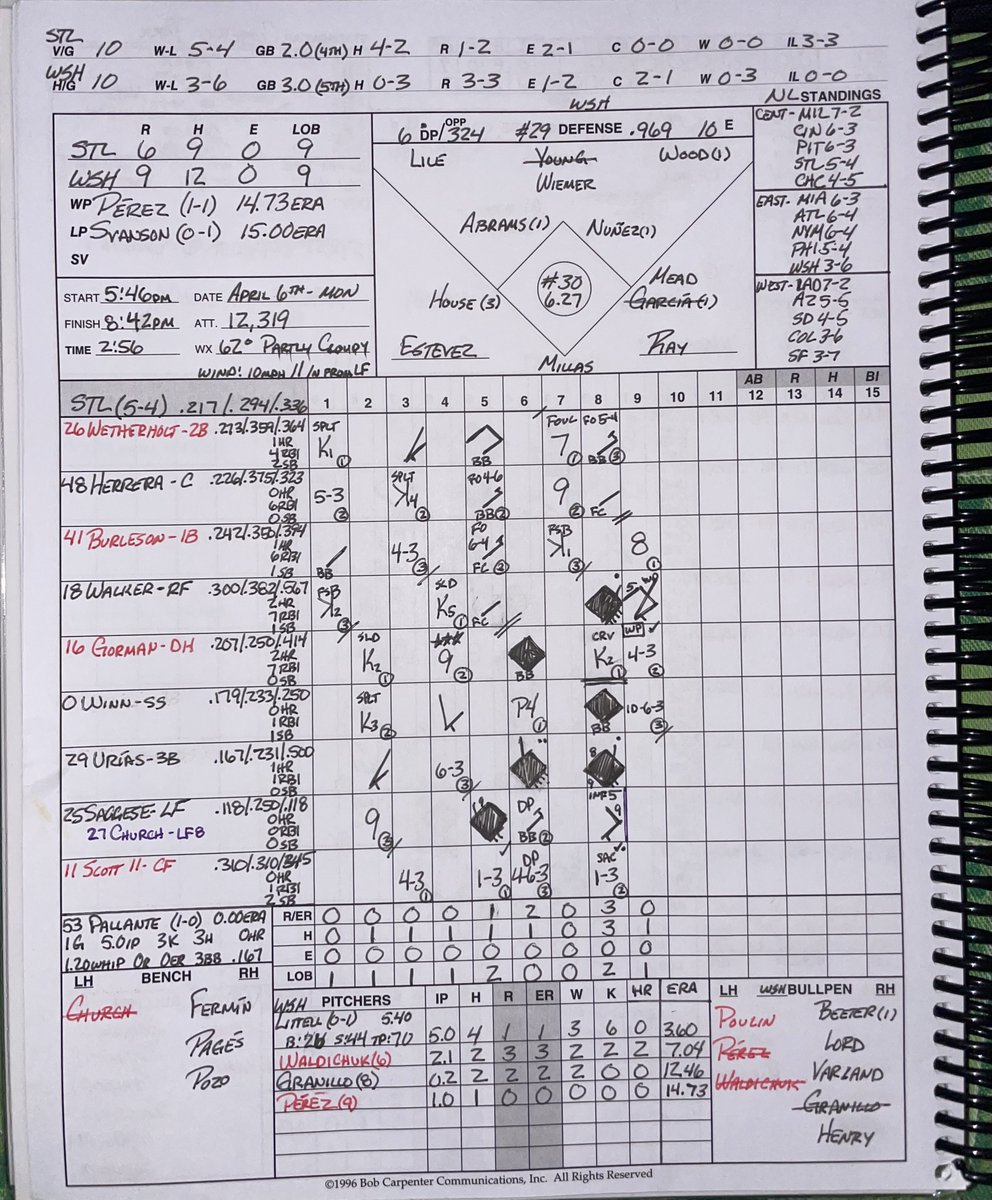 STL
V/G 10 W-L 5-4 GB 2.0(4TH) H 4-2 R 1-2 E 2-1 C 0-0 W 0-0 IL 3-3
WSH
H/G 10 W-L 3-6 GB 3.0(5TH) H 0-3 R 3-3 E 1-2 C 2-1 W 0-3 IL 0-0
R H E LOB
STL 6 9 0 9
WSH 9 12 0 9
WP PÉREZ (1-1) 14.73 ERA
LP SVANSON (0-1) 15.00 ERA
SV
START 5:46PM DATE APRIL 6TH-MON
FINISH 8:42PM ATT. 12,319
TIME 2:56 WX 62° PARTLY CLOUDY
WIND: 10MPH // IN FROM LF
WSH
6 DP/OPP .324 #29 DEFENSE .969 10 E
LILE YOUNG WOOD(1)
WIEMER
ABRAMS(1) NUÑEZ(1)
#30
6.27
HOUSE (3) MEAD
GARCÍA(1)
ESTEVEZ RAY
MILLAS
NL STANDINGS
CENT- MIL 7-2
CIN 6-3
PIT 6-3
STL 5-4
CHC 4-5
EAST- MIA 6-3
ATL 6-4
NYM 6-4
PHI 5-4
WSH 3-6
WEST- LAD 7-2
AZ 5-5
SD 4-5
COL 3-6
SF 3-7
STL (5-4) .217/.294/.336 1 2 3 4 5 6 7 8 9 10 11 12 13 14 15
AB R H BI
26 WETHERHOLT-2B .273/.359/.364
1HR
4RBI
2SB
SPLT K1 BB FOUL 7 FO5-4 BB
48 HERRERA-C .226/.375/.323
0HR
6RBI
0SB
5-3 SPLT K4 FO4-6 BB 9 FC
41 BURLESON-1B .242/.350/.394
1HR
6RBI
1SB
BB 4-3 FO 6-4 FC FSB K1 8
18 WALKER-RF .300/.382/.567
2HR
7RBI
1SB
FSB K2 SLD K5 FC WP
16 GORMAN-DH .207/.250/.414
2HR
7RBI
0SB
SLD K2 9 BB CRV K2 WP 4-3
0 WINN-SS .179/.233/.250
0HR
1RBI
1SB
SPLT K3 P4 BB 1D-6-3
29 URÍAS-3B .167/.231/.500
1HR
1RBI
0SB
6-3
25 SAGGESE-LF .118/.250/.118
27 CHURCH-LF8
0HR
0RBI
0SB
9 DP BB INF5 9
11 SCOTT II-CF .310/.310/.345
0HR
1RBI
2SB
4-3 1-3 DP 46-3 SAC 1-3
53 PALLANTE (1-0) 0.00 ERA
1G 5.0IP 3K 3H 0HR
1.20WHIP 0R 0ER 3BB .167
R/ER 0 0 0 0 1 2 0 3 0
H 0 1 1 1 1 1 0 3 1
E 0 0 0 0 0 0 0 0 0
LOB 1 1 1 1 2 0 0 2 1
LH BENCH RH
CHURCH FERMÍN
PAGÉS
POZO
WSH PITCHERS IP H R ER W K HR ERA
LITTELL (0-1) 5.40
B:26 S:44 TP:70 5.0 4 1 1 3 6 0 3.60
WALDICHUK(6) 2.1 2 3 3 2 2 2 7.04
GRANILLO(8) 0.2 2 2 2 2 0 0 12.46
PÉREZ(9) 1.0 1 0 0 0 0 0 14.73
LH WSH BULLPEN RH
POULIN BEETER(1)
PÉREZ LORD
WALDICHUK VARLAND
GRANILLO
HENRY
©1996 Bob Carpenter Communications, Inc. All Rights Reserved